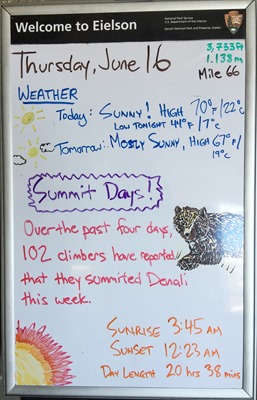 Welcome to Eielson
National Park Service
U.S. Department of the Interior
Denali National Park and Preserve, Alaska
3,733ft
1.138m
Mile 66
Thursday, June 16
WEATHER
Today: SUNNY! HIGH 70°F/22°C
LOW TONIGHT 44°F/7°C
TOMORROW: MOSTLY SUNNY, HIGH 67°F/
19°C
Summit Days!
Over the past four days,
102 climbers have reported
that they summited Denali
this week.
SUNRISE 3:45 AM
SUNSET 12:23 AM
DAY LENGTH 20 hrs 38 mins